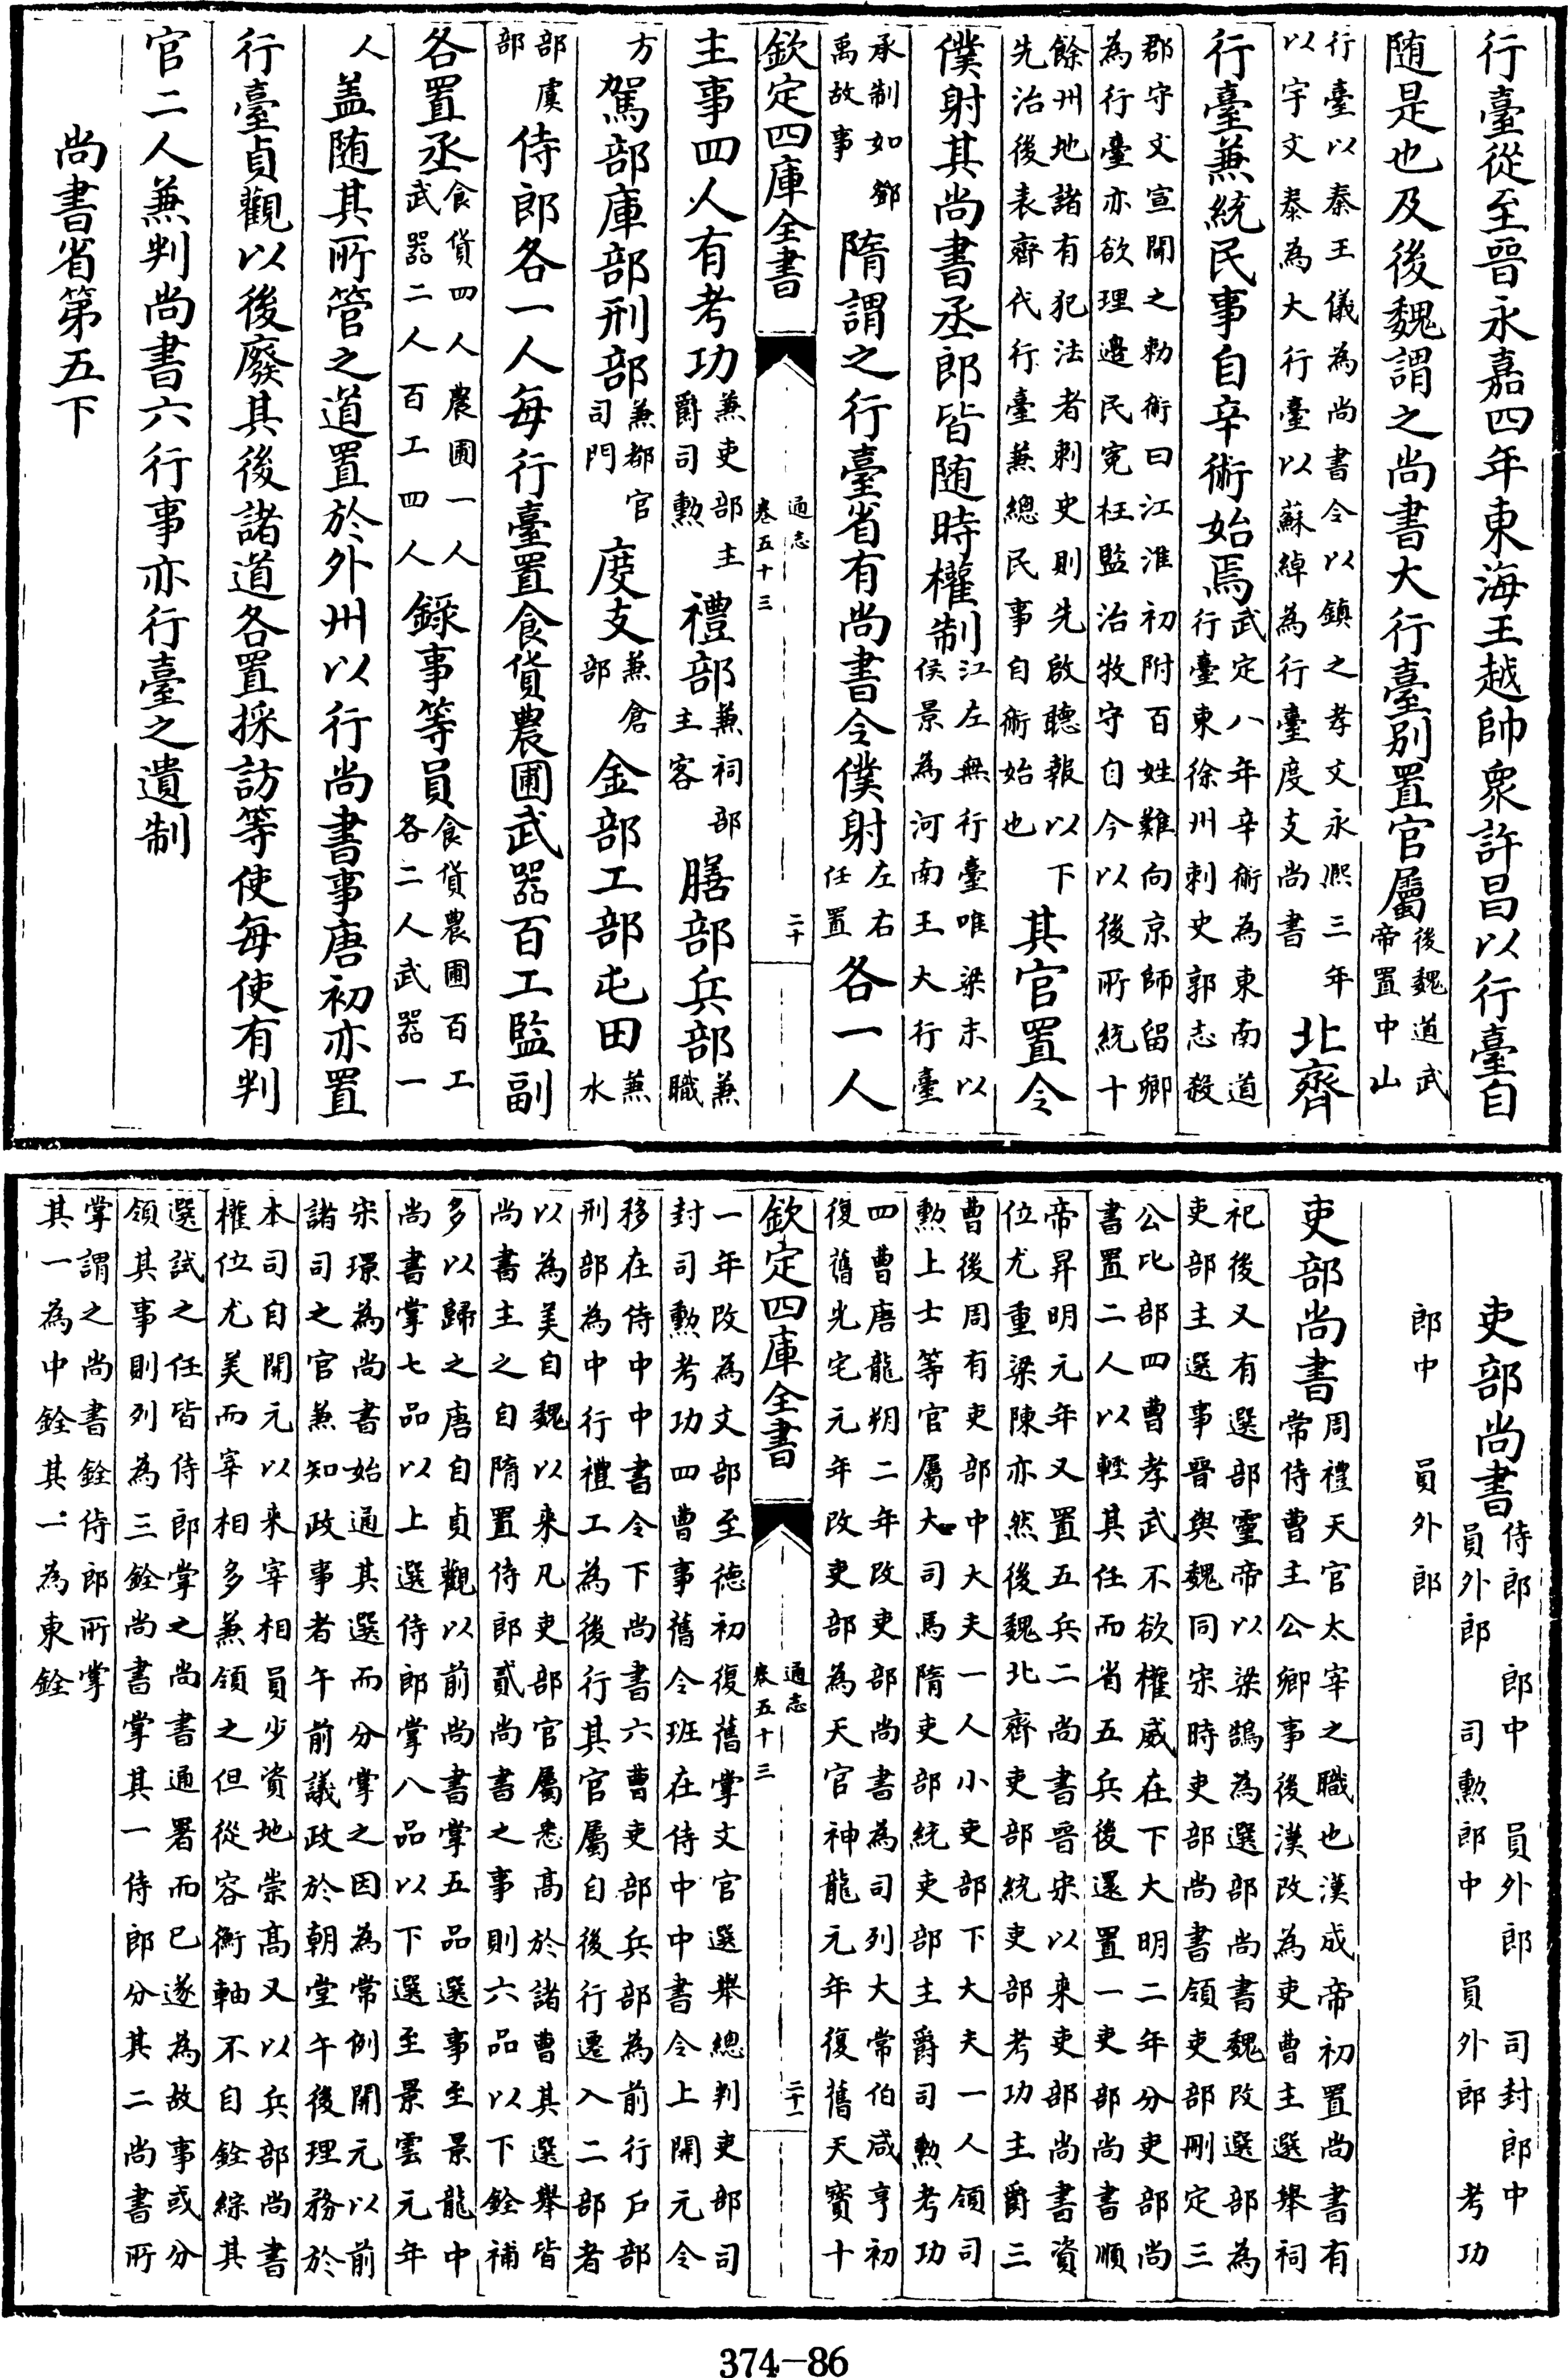 行臺從至晉永嘉四年東海王越帥衆許昌以行臺自
随是也及後魏謂之尚書大行臺别置官屬後魏道武帝置中山
行臺以秦王儀為尚書令以鎮之孝文永熙三年以宇文泰為大行臺以蘇綽為行臺度支尚書北齊
行臺兼統民事自辛術始焉武定八年辛術為東南道行臺東徐州刺史郭志殺
郡守文宣聞之勅術曰江淮初附百姓難向京師留卿為行臺亦欲理邉民寃枉監治牧守自今以後所統十
餘州地諸有犯法者刺史則先啟聽報以下先治後表齊代行臺兼總民事自術始也其官置令
僕射其尚書丞郎皆随時權制江左無行臺唯梁末以侯景為河南王大行臺
承制如鄧禹故事隋謂之行臺省有尚書令僕射左右任置各一人
欽定四庫全書 通志 卷五十三 二十
主事四人有考功兼吏部主爵司勲禮部兼祠部主客膳部兵部兼職
方駕部庫部刑部兼都官司門度支兼倉部金部工部屯田兼水
部虞部侍郎各一人每行臺置食貨農圃武器百工監副
各置丞食貨四人農圃一人武器二人百工四人錄事等員食貨農圃百工各二人武器一
人盖随其所管之道置於外州以行尚書事唐初亦置
行臺貞觀以後廢其後諸道各置採訪等使每使有判
官二人兼判尚書六行事亦行臺之遺制
尚書省第五下
吏部尚書侍郎 郎中 員外郎 司封郎中 員外郎 司勲郎中 員外郎 考功
郎中 員外郎
吏部尚書周禮天官太宰之職也漢成帝初置尚書有常侍曹主公卿事後漢改為吏曹主選舉祠
祀後又有選部靈帝以梁鵠為選部尚書魏改選部為吏部主選事晉與魏同宋時吏部尚書領吏部刪定三
公比部四曹孝武不欲權威在下大明二年分吏部尚書置二人以輕其任而省五兵後還置一吏部尚書順
帝昇明元年又置五兵二尚書晉宋以来吏部尚書資位尤重梁陳亦然後魏北齊吏部統吏部考功主爵三
曹後周有吏部中大夫一人小吏部下大夫一人領司勲上士等官屬大司馬隋吏部統吏部主爵司勲考功
四曹唐龍朔二年改吏部尚書為司列大常伯咸亨初復舊光宅元年改吏部為天官神龍元年復舊天寶十
欽定四庫全書 通志 卷五十三 二十一
一年改為文部至德初復舊掌文官選舉總判吏部司封司勲考功四曹事舊令班在侍中中書令上開元令
移在侍中中書令下尚書六曹吏部兵部為前行戶部刑部為中行禮工為後行其官屬自後行遷入二部者
以為美自魏以来凡吏部官屬悉高於諸曹其選舉皆尚書主之自隋置侍郎貳尚書之事則六品以下銓補
多以歸之唐自貞觀以前尚書掌五品選事至景龍中尚書掌七品以上選侍郎掌八品以下選至景雲元年
宋璟為尚書始通其選而分掌之因為常例開元以前諸司之官兼知政事者午前議政於朝堂午後理務於
本司自開元以来宰相員少資地崇高又以兵部尚書權位尤美而宰相多兼領之但從容衡軸不自銓綜其
選試之任皆侍郎掌之尚書通署而已遂為故事或分領其事則列為三銓尚書掌其一侍郎分其二尚書所
掌謂之尚書銓侍郎所掌其一為中銓其一為東銓
374-86